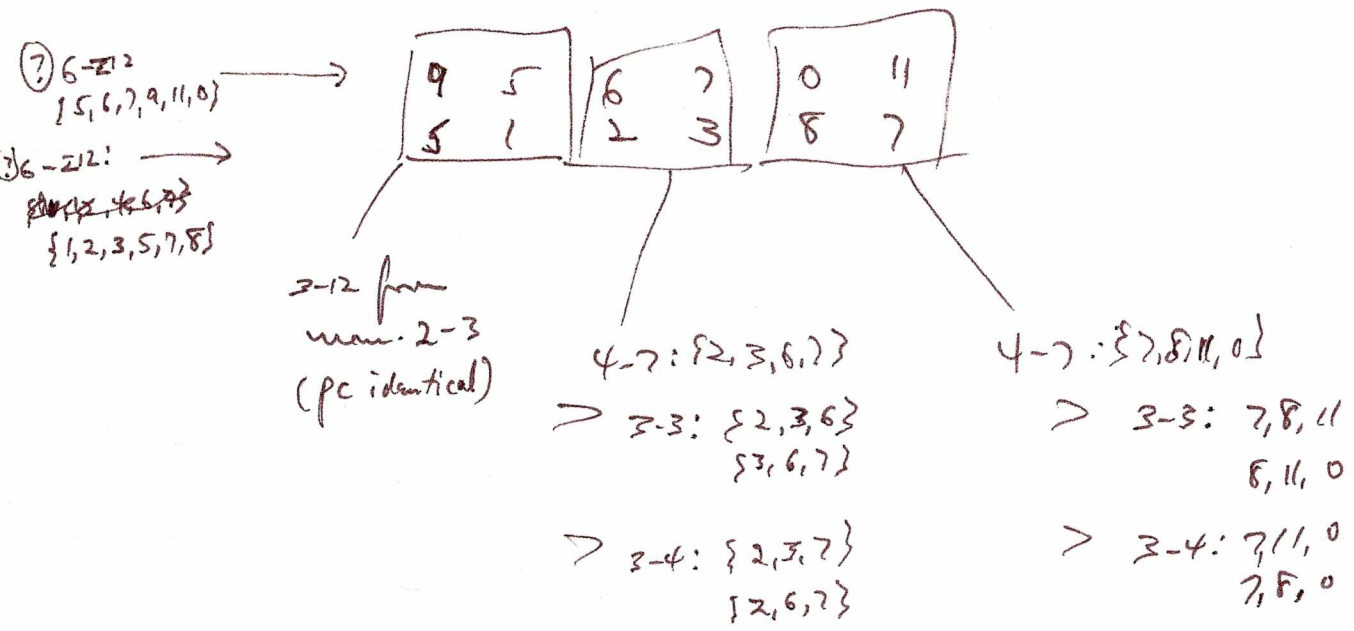 ? 6-Z12
{5,6,7,9,11,0}
9 5 6 7 0 11
5 1 2 3 8 7
? 6-Z12:
{1,2,3,5,7,8}
3-12 from
mm. 2-3
(pc identical)
4-7: {2,3,6,7}
> 3-3: {2,3,6}
{3,6,7}
> 3-4: {2,3,7}
{2,6,7}
4-7: {7,8,11,0}
> 3-3: 7,8,11
8,11,0
> 3-4: 7,11,0
7,8,0